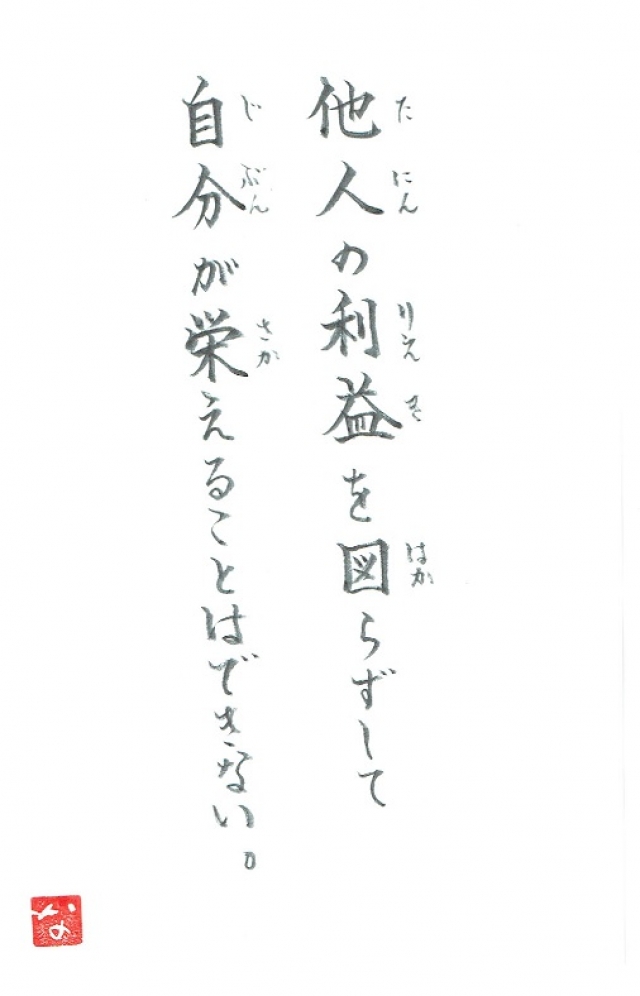 他人の利益を図らずして
たにん りえき はか
自分が栄えることはできない。
じぶん さか